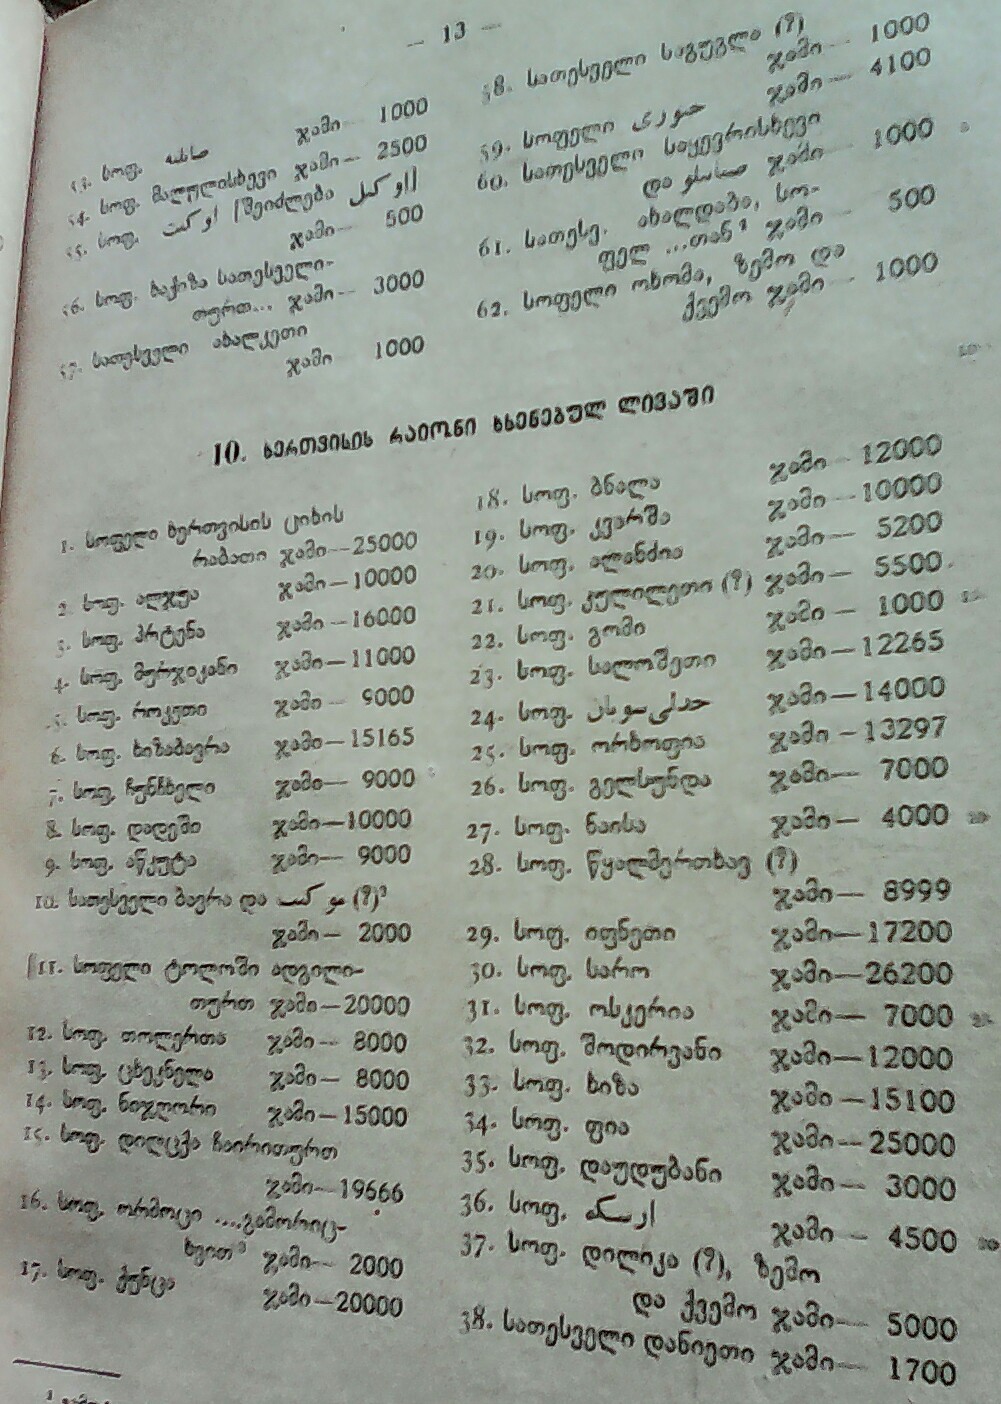 — 13 —
53. სოფ.
ჯამი— 1000
54. სოფ. მალულისხევი ჯამი— 2500
55. სოფ. اوكت /შეიძლება اوكيل/
ჯამი— 500
56. სოფ. ხაჭიზა სათესველი-
თურთ... ჯამი— 3000
57. სათესველი ახალკეთი
ჯამი 1000
58. სათესველი საგუგლა (?)
ჯამი— 1000
59. სოფელი ჯამი— 4100
60. სათესველი საყევრისხევი
და ჯამი 1000
61. სათესვე. ახალდაბა, სო-
ფელ ...თან ჯამი— 500
62. სოფელი ოხომა, ზემო და
ქვემო ჯამი— 1000
10. ხერთვისის რაიონი ხსენებულ ლივაში
1. სოფელი ხერთვისის ციხის
რაბათი ჯამი—25000
2. სოფ. ალჯუა ჯამი—10000
3. სოფ. პრტენა ჯამი—16000
4. სოფ. მურჯიკანი ჯამი—11000
5. სოფ. როკეთი ჯამი— 9000
6. სოფ. ხიზაბავრა ჯამი—15165
7. სოფ. ჩუნჩხელი ჯამი— 9000
8. სოფ. დადეში ჯამი—10000
9. სოფ. აწკუტა ჯამი— 9000
10. სათესველი ბავრა და (?)²
ჯამი— 2000
11. სოფელი ტოლოში ადგილი-
თურთ ჯამი—20000
12. სოფ. თოლერთა ჯამი— 8000
13. სოფ. ცხეკნელა ჯამი— 8000
14. სოფ. ნიჯღორი ჯამი—15000
15. სოფ. დიღცქა ჩაირითურთ
ჯამი—19666
16. სოფ. ორმოცი ....გამორიც-
ხვით³ ჯამი— 2000
17. სოფ. ჭუნცა ჯამი—20000
18. სოფ. ბნალა ჯამი—12000
19. სოფ. კვარშა ჯამი—10000
20. სოფ. ალანძია ჯამი— 5200
21. სოფ. კულილეთი (?) ჯამი— 5500
22. სოფ. გომი ჯამი— 1000
23. სოფ. სალოშეთი ჯამი—12265
24. სოფ. ჯამი—14000
25. სოფ. ორხოფია ჯამი—13297
26. სოფ. გელსუნდა ჯამი— 7000
27. სოფ. ნაისა ჯამი— 4000
28. სოფ. წყალმერთხავ (?)
ჯამი— 8999
29. სოფ. იფნეთი ჯამი—17200
30. სოფ. სარო ჯამი—26200
31. სოფ. ოსკერია ჯამი— 7000
32. სოფ. შოდირვანი ჯამი—12000
33. სოფ. ხიზა ჯამი—15100
34. სოფ. ფია ჯამი—25000
35. სოფ. დაუდუბანი ჯამი— 3000
36. სოფ. ارسكه ჯამი— 4500
37. სოფ. დილიკა (?), ზემო
და ქვემო ჯამი— 5000
38. სათესველი დანიეთი ჯამი— 1700